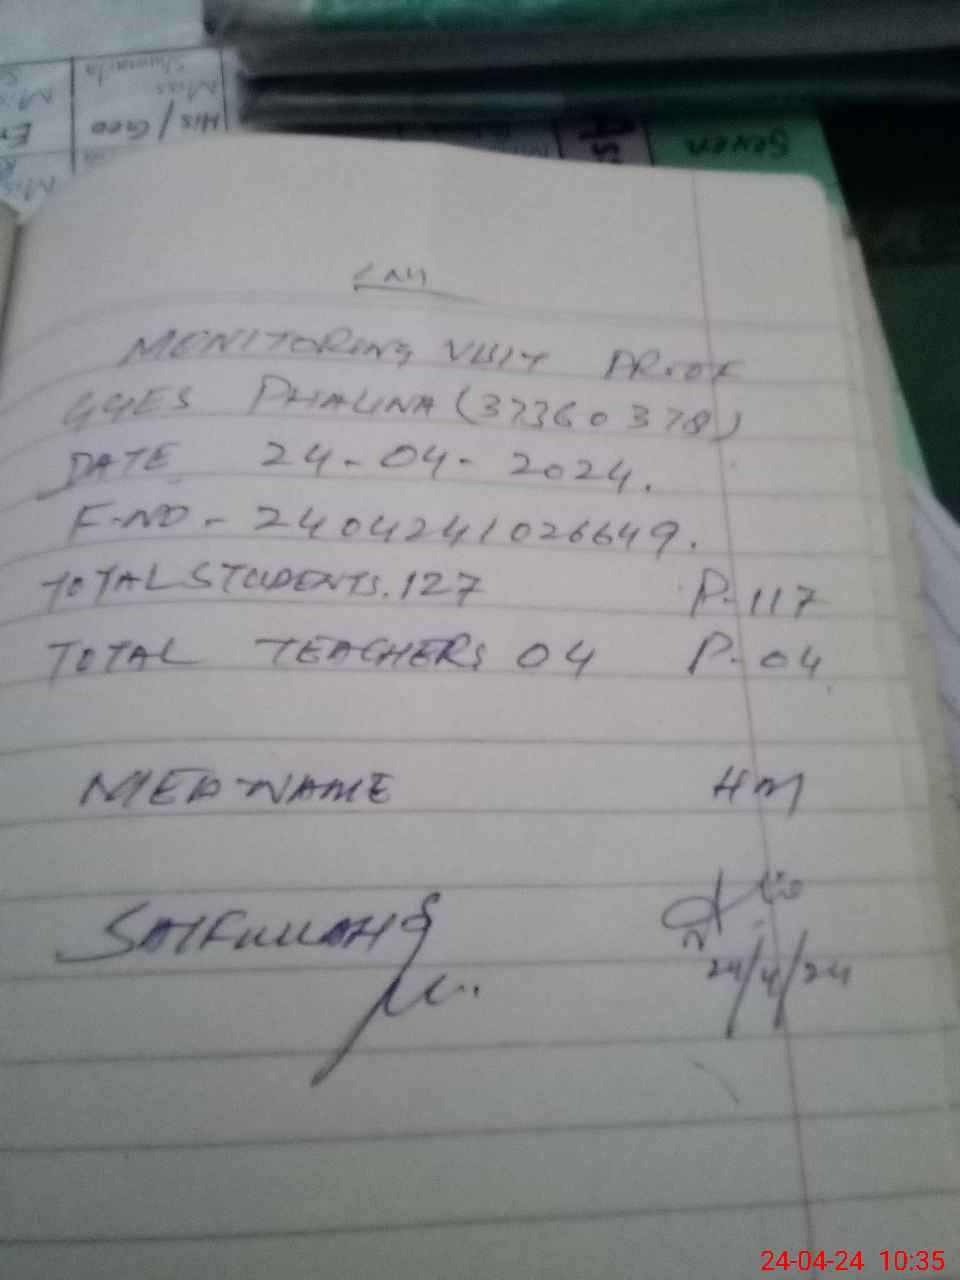 MONITORING VISIT PROOF
GGES PHALINA (37360378)
DATE 24-04-2024.
F-NO- 2404241026649.
TOTAL STUDENTS. 127 P-117
TOTAL TEACHERS 04 P-04
NAME HM
SAIFULLAH
24/4/24
Seven
His/Geo
Miss
24-04-24 10:35